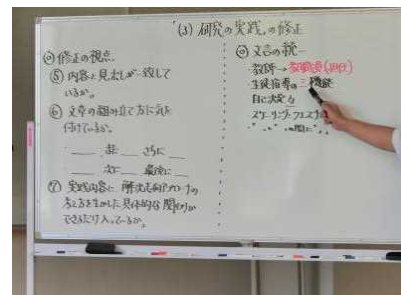 「(3) 研究の実践」の修正
◎修正の視点
⑤ 内容と見出しが一致して
いるか。
⑥ 文章の組み立て方に気を
付けているか。
さらに
次に 最後に
⑦ 実践内容に解決志向アプローチの
考え方を生かした具体的な関わりが
できるだけ入っているか。
◎文言の統一
教師→教職員(担任)
生徒指導の三機能
自己決定
スケーリング・クエスチョン